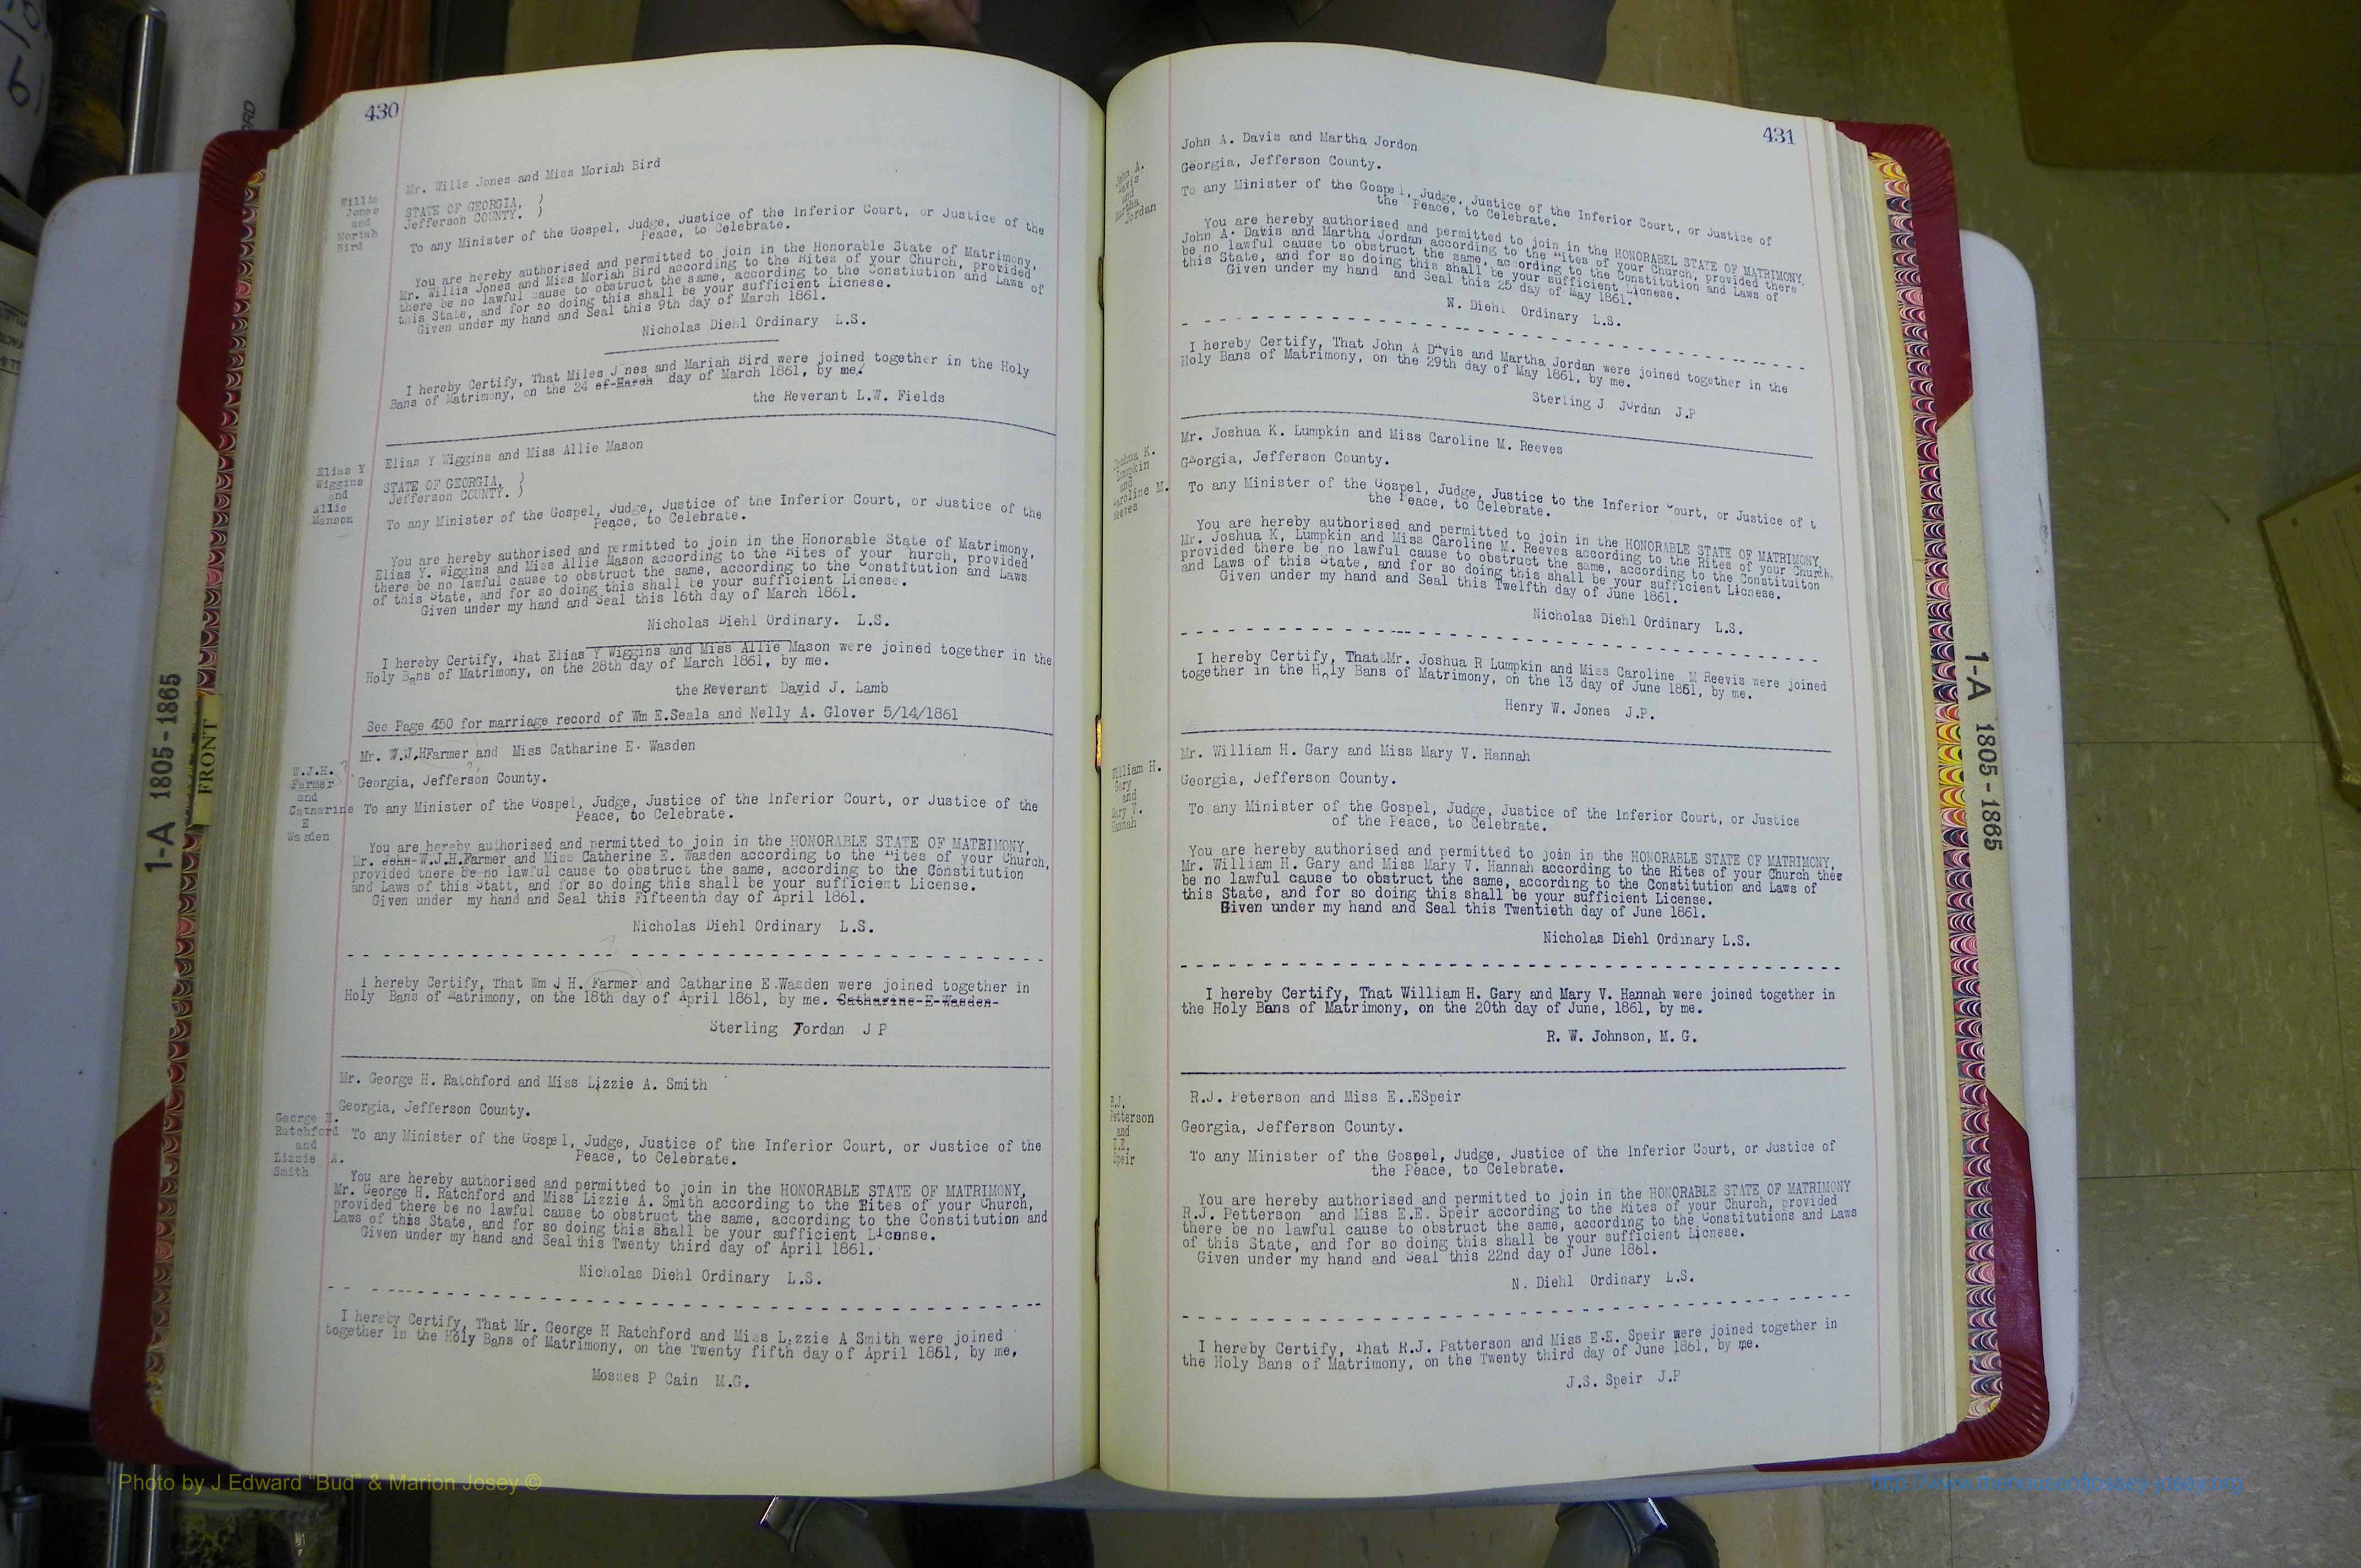 430
Mr. Wills Jones and Miss Moriah Bird
Willis
Jones
and
Moriah
Bird
STATE OF GEORGIA, }
Jefferson COUNTY. }
To any Minister of the Gospel, Judge, Justice of the Inferior Court, or Justice of the
Peace, to Celebrate.
You are hereby authorised and permitted to join in the Honorable State of Matrimony,
Mr. Willis Jones and Miss Moriah Bird according to the Rites of your Church, provided
there be no lawful cause to obstruct the same, according to the Constiution and Laws of
this State, and for so doing this shall be your sufficient Licnese.
Given under my hand and Seal this 9th day of March 1861.
Nicholas Diehl Ordinary L.S.
I hereby Certify, That Miles Jones and Mariah Bird were joined together in the Holy
Bans of Matrimony, on the 24 of March day of March 1861, by me,
the Reverant L.W. Fields
Elias Y Wiggins and Miss Allie Mason
Elias Y
Wiggins
and
Allie
Manson
STATE OF GEORGIA, }
Jefferson COUNTY. }
To any Minister of the Gospel, Judge, Justice of the Inferior Court, or Justice of the
Peace, to Celebrate.
You are hereby authorised and permitted to join in the Honorable State of Matrimony,
Elias Y. Wiggins and Miss Allie Mason according to the Rites of your hurch, provided
there be no lawful cause to obstruct the same, according to the Constitution and Laws
of this State, and for so doing this shall be your sufficient Licnese.
Given under my hand and Seal this 16th day of March 1861.
Nicholas Diehl Ordinary. L.S.
I hereby Certify, That Elias Y Wiggins and Miss Allie Mason were joined together in the
Holy Bans of Matrimony, on the 28th day of March 1861, by me.
the Reverant David J. Lamb
See Page 450 for marriage record of Wm E.Seals and Nelly A. Glover 5/14/1861
Mr. W.J.HFarmer and Miss Catharine E. Wasden
W.J.H. ?
Farmer
and
Catharine
E
Wasden
Georgia, Jefferson County.
To any Minister of the Gospel, Judge, Justice of the Inferior Court, or Justice of the
Peace, to Celebrate.
You are hereby authorised and permitted to join in the HONORABLE STATE OF MATRIMONY,
Mr. John W.J.H.Farmer and Miss Catherine E. Wasden according to the Rites of your Church,
provided there be no lawful cause to obstruct the same, according to the Constitution
and Laws of this Statt, and for so doing this shall be your sufficient License.
Given under my hand and Seal this Fifteenth day of April 1861.
Nicholas Diehl Ordinary L.S.
I hereby Certify, That Wm J H. Farmer and Catharine E.Wasden were joined together in
Holy Bans of Matrimony, on the 18th day of April 1861, by me. Catharine E Wasden
Sterling Jordan J P
Mr. George H. Ratchford and Miss Lizzie A. Smith
George H.
Ratchford
and
Lizzie A.
Smith
Georgia, Jefferson County.
To any Minister of the Gospel, Judge, Justice of the Inferior Court, or Justice of the
Peace, to Celebrate.
You are hereby authorised and permitted to join in the HONORABLE STATE OF MATRIMONY,
Mr. George H. Ratchford and Miss Lizzie A. Smith according to the Rites of your Church,
provided there be no lawful cause to obstruct the same, according to the Constitution and
Laws of this State, and for so doing this shall be your sufficient Licnnse.
Given under my hand and Seal this Twenty third day of April 1861.
Nicholas Diehl Ordinary L.S.
I hereby Certify, That Mr. George H Ratchford and Miss Lizzie A Smith were joined
together in the Holy Bans of Matrimony, on the Twenty fifth day of April 1861, by me,
Mosses P Cain M.G.
431
John A. Davis and Martha Jordon
John A.
Davis
and
Martha
Jordan
Georgia, Jefferson County.
To any Minister of the Gospel, Judge, Justice of the Inferior Court, or Justice of
the Peace, to Celebrate.
You are hereby authorised and permitted to join in the HONORABEL STATE OF MATRIMONY,
John A. Davis and Martha Jordan according to the Rites of your Church, provided there
be no lawful cause to obstruct the same, according to the Constitution and Laws of
this State, and for so doing this shall be your sufficient Licnese.
Given under my hand and Seal this 25 day of May 1861.
N. Diehl Ordinary L.S.
I hereby Certify, That John A Davis and Martha Jordan were joined together in the
Holy Bans of Matrimony, on the 29th day of May 1861, by me.
Sterling J Jordan J.P
Mr. Joshua K. Lumpkin and Miss Caroline M. Reeves
Joshua K.
Lumpkin
and
Caroline M.
Reeves
Georgia, Jefferson County.
To any Minister of the Gospel, Judge, Justice to the Inferior Court, or Justice of t
the Peace, to Celebrate.
You are hereby authorised and permitted to join in the HONORABLE STATE OF MATRIMONY,
Mr. Joshua K. Lumpkin and Miss Caroline M. Reeves according to the Rites of your Church,
provided there be no lawful cause to obstruct the same, according to the Constituiton
and Laws of this State, and for so doing this shall be your sufficient Licnese.
Given under my hand and Seal this Twelfth day of June 1861.
Nicholas Diehl Ordinary L.S.
I hereby Certify, That Mr. Joshua R Lumpkin and Miss Caroline M Reevis were joined
together in the Holy Bans of Matrimony, on the 13 day of June 1861, by me.
Henry W. Jones J.P.
Mr. William H. Gary and Miss Mary V. Hannah
William H.
Gary
and
Mary V.
Hannah
Georgia, Jefferson County.
To any Minister of the Gospel, Judge, Justice of the Inferior Court, or Justice
of the Peace, to Celebrate.
You are hereby authorised and permitted to join in the HONORABLE STATE OF MATRIMONY,
Mr. William H. Gary and Miss Mary V. Hannah according to the Rites of your Church thee
be no lawful cause to obstruct the same, according to the Constitution and Laws of
this State, and for so doing this shall be your sufficient License.
Given under my hand and Seal this Twentieth day of June 1861.
Nicholas Diehl Ordinary L.S.
I hereby Certify, That William H. Gary and Mary V. Hannah were joined together in
the Holy Bans of Matrimony, on the 20th day of June, 1861, by me.
R. W. Johnson, M. G.
R.J. Peterson and Miss E..ESpeir
R.J.
Petterson
and
E.E.
Speir
Georgia, Jefferson County.
To any Minister of the Gospel, Judge, Justice of the Inferior Court, or Justice of
the Peace, to Celebrate.
You are hereby authorised and permitted to join in the HONORABLE STATE OF MATRIMONY
R.J. Petterson and Miss E.E. Speir according to the Rites of your Church, provided
there be no lawful cause to obstruct the same, according to the Constitutions and Laws
of this State, and for so doing this shall be your sufficient Licnese.
Given under my hand and Seal this 22nd day of June 1861.
N. Diehl Ordinary L.S.
I hereby Certify, That R.J. Patterson and Miss E.E. Speir were joined together in
the Holy Bans of Matrimony, on the Twenty third day of June 1861, by me.
J.S. Speir J.P
1-A 1805-1865
FRONT
1-A 1805-1865
Photo by J Edward "Bud" & Marion Josey ©
http://www.thehouseofjossey-josey.org